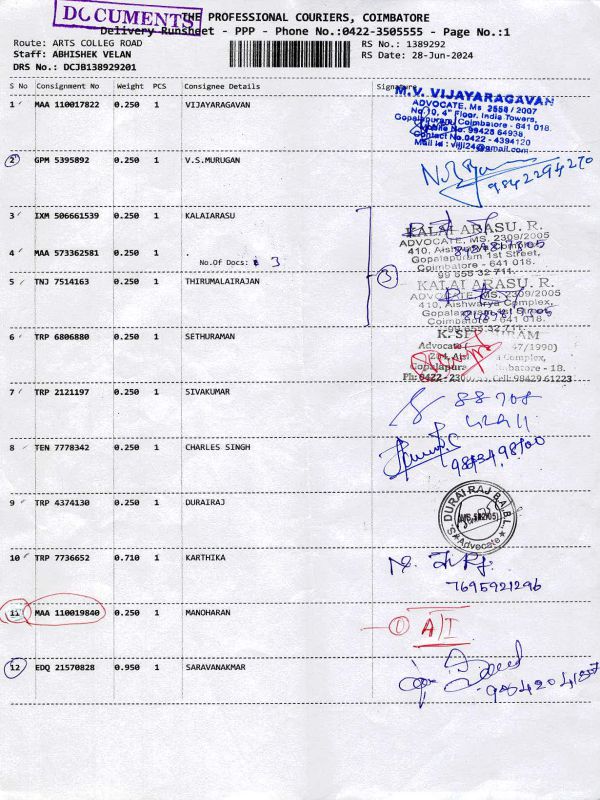 DOCUMENTS
THE PROFESSIONAL COURIERS, COIMBATORE
Delivery Runsheet - PPP - Phone No.:0422-3505555 - Page No.:1
Route: ARTS COLLEG ROAD
RS No.: 1389292
Staff: ABHISHEK VELAN
RS Date: 28-Jun-2024
DRS No.: DCJB138929201
S No Consignment No Weight PCS Consignee Details Signature
1 MAA 110017822 0.250 1 VIJAYARAGAVAN
M.V. VIJAYARAGAVAN
ADVOCATE, Ms 2558 / 2007
No.10, 4th Floor, India Towers,
Gopalapuram, Coimbatore - 641 018.
Mobile No. 98428 64938,
Contact No.0422 - 4394120
Mail id : vijji24@gmail.com
2 GPM 5395892 0.250 1 V.S.MURUGAN
9842294270
3 IXM 506661539 0.250 1 KALAIARASU
KALAI ARASU. R.
ADVOCATE, MS. 2309/2005
410, Aishwarya Complex,
Gopalapuram 1st Street,
Coimbatore - 641 018.
99 555 32 711.
4 MAA 573362581 0.250 1
No.Of Docs: 3
3
5 TNJ 7514163 0.250 1 THIRUMALAIRAJAN
KALAI ARASU. R.
ADVOCATE, MS. 2309/2005
410, Aishwarya Complex,
Gopalapuram 1st Street,
Coimbatore - 641 018.
99 555 32 711.
6 TRP 6806880 0.250 1 SETHURAMAN
Advocate 47/1990)
Complex,
Gopalapura
Coimbatore - 18.
Ph: 0422-230 Cell: 98429 61223
7 TRP 2121197 0.250 1 SIVAKUMAR
88708
8 TEN 7778342 0.250 1 CHARLES SINGH
9 TRP 4374130 0.250 1 DURAIRAJ
S. DURAI RAJ B.A.B.L.
Advocate
10 TRP 7736652 0.710 1 KARTHIKA
7695921296
11 MAA 110019840 0.250 1 MANOHARAN
1 A/I
12 EDQ 21570828 0.950 1 SARAVANAKMAR